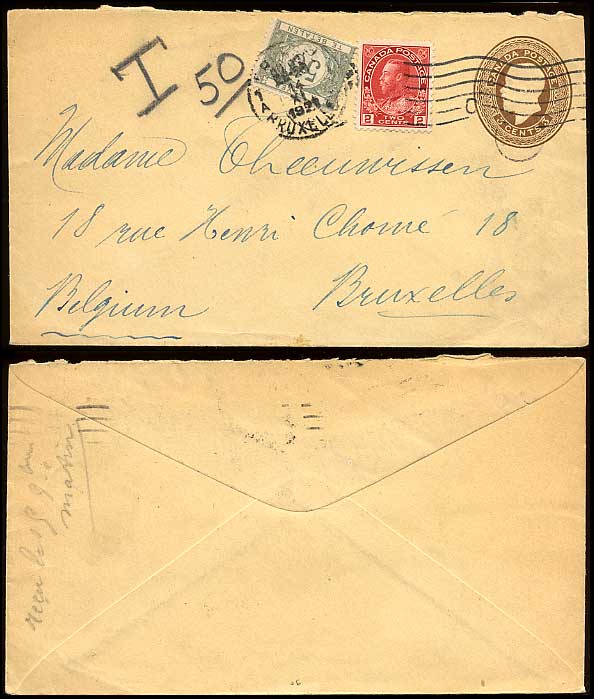 T 50
TE BETALEN
1921
BRUXELL
CANADA POSTAGE
2 TWO CENTS 2
CANADA POSTAGE
3 CENTS 3
Madame Theeuwissen
18 rue Henri Chomé 18
Bruxelles
Belgium
matin